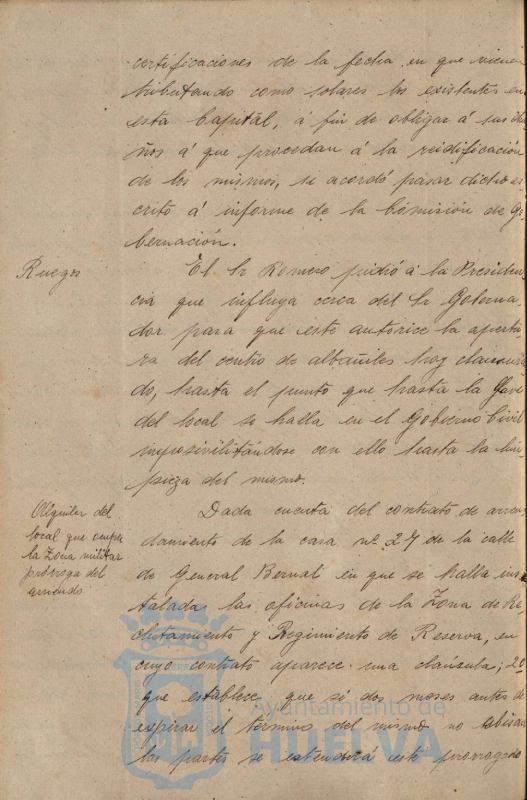 certificaciones de la fecha en que vienen
tributando como solares los existentes en
esta Capital, á fin de obligar á sus due
ños á que procedan á la reidificación
de los mismos, se acordó pasar dicho es
crito á informe de la Comisión de Go
bernación.
Ruegos
El Sr Romero pidió á la Presiden
cia que influya cerca del Sr Goberna
dor para que este autorice la apertu
ra del centro de albañiles hoy clausura
do, hasta el punto que hasta la llave
del local se halla en el Gobierno Civil
imposivilitándose con ello hasta la lim
pieza del mismo.
Alquiler del
local que ocupa
la Zona militar
prórroga del
arriendo
Dada cuenta del contrato de arren
damiento de la casa nº 27 de la calle
de General Bernal en que se halla ins
talada las oficinas de la Zona de Re
clutamiento y Regimiento de Reserva, en
cuyo contrato aparece una cláusula, 2ª
que establece que si dos meses antes de
expirar el término del mismo no avisan
las partes se entenderá este prorrogado
Ayuntamiento de
HUELVA